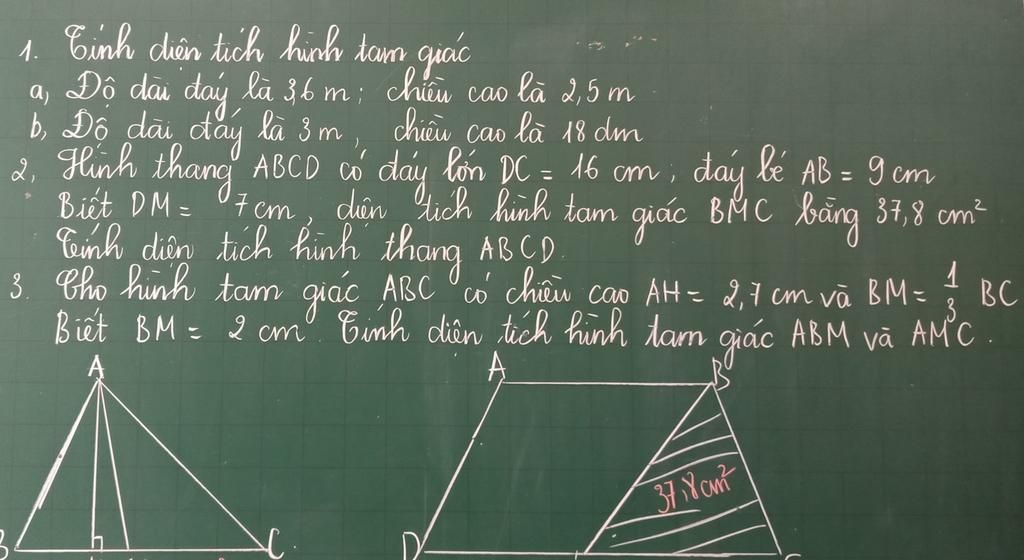 1. Tính diện tích hình tam giác
a, Độ dài đáy là 3,6 m; chiều cao là 2,5 m
b, Độ dài đáy là 3 m, chiều cao là 18 dm
2, Hình thang ABCD có đáy lớn DC = 16 cm; đáy bé AB = 9 cm
Biết DM = 7 cm, diện tích hình tam giác BMC bằng 37,8 cm²
Tính diện tích hình thang ABCD.
3. Cho hình tam giác ABC có chiều cao AH = 2,7 cm và BM = 1/3 BC
Biết BM = 2 cm. Tính diện tích hình tam giác ABM và AMC.
A
A B
37,8 cm²
B C D C